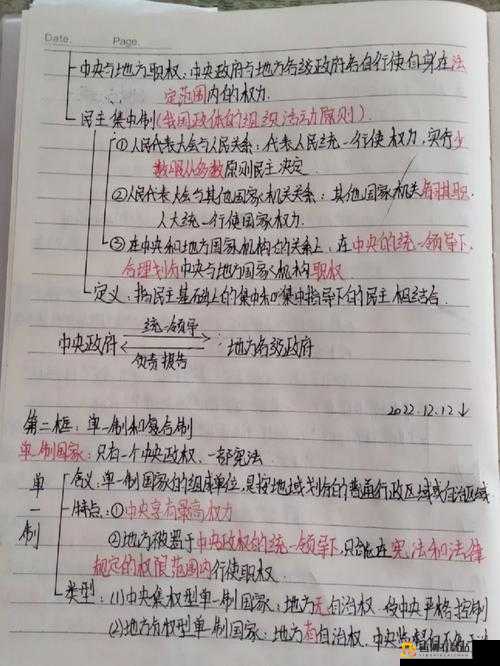 Date. Page.
中央与地方职权：中央政府与地方各级政府各自行使自身在法
定范围内的权力.
民主集中制(我国政体的组织活动原则)
①人民代表大会与人民关系：代表人民统一行使权力，实行少
数服从多数原则民主决定.
②人民代表大会与其他国家机关关系：其他国家机关各司其职.
人大统一行使国家权力.
③在中央和地方国家机构的关系上，在中央的统一领导下，
合理划分中央与地方国家机构职权
定义：指民主基础上的集中和集中指导下的民主相结合.
统一领导
中央政府 地方各级政府
负责报告
2022.12.12↓
第二框：单一制和复合制
单一制国家：只有一个中央政权、一部宪法
单一制
含义：单一制国家的组成单位，是按地域划分的普通行政区域或自治区域
特点：①中央享有最高权力
②地方被置于中央政权的统一领导下，只能在宪法和法律
规定的权限范围内行使职权.
类型：(1)中央集权型单一制国家：地方无自治权.受中央严格控制
(2)地方分权型单一制国家：地方有自治权.中央